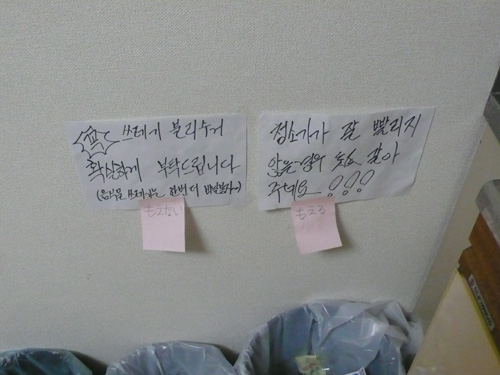 꼭 쓰레기 분리수거
확실하게 부탁드립니다
(음식물 쓰레기는 한번 더
もえない
청소기가 잘 빨리지
않을 경우 촛 갈아
주세요 !!!
もえる